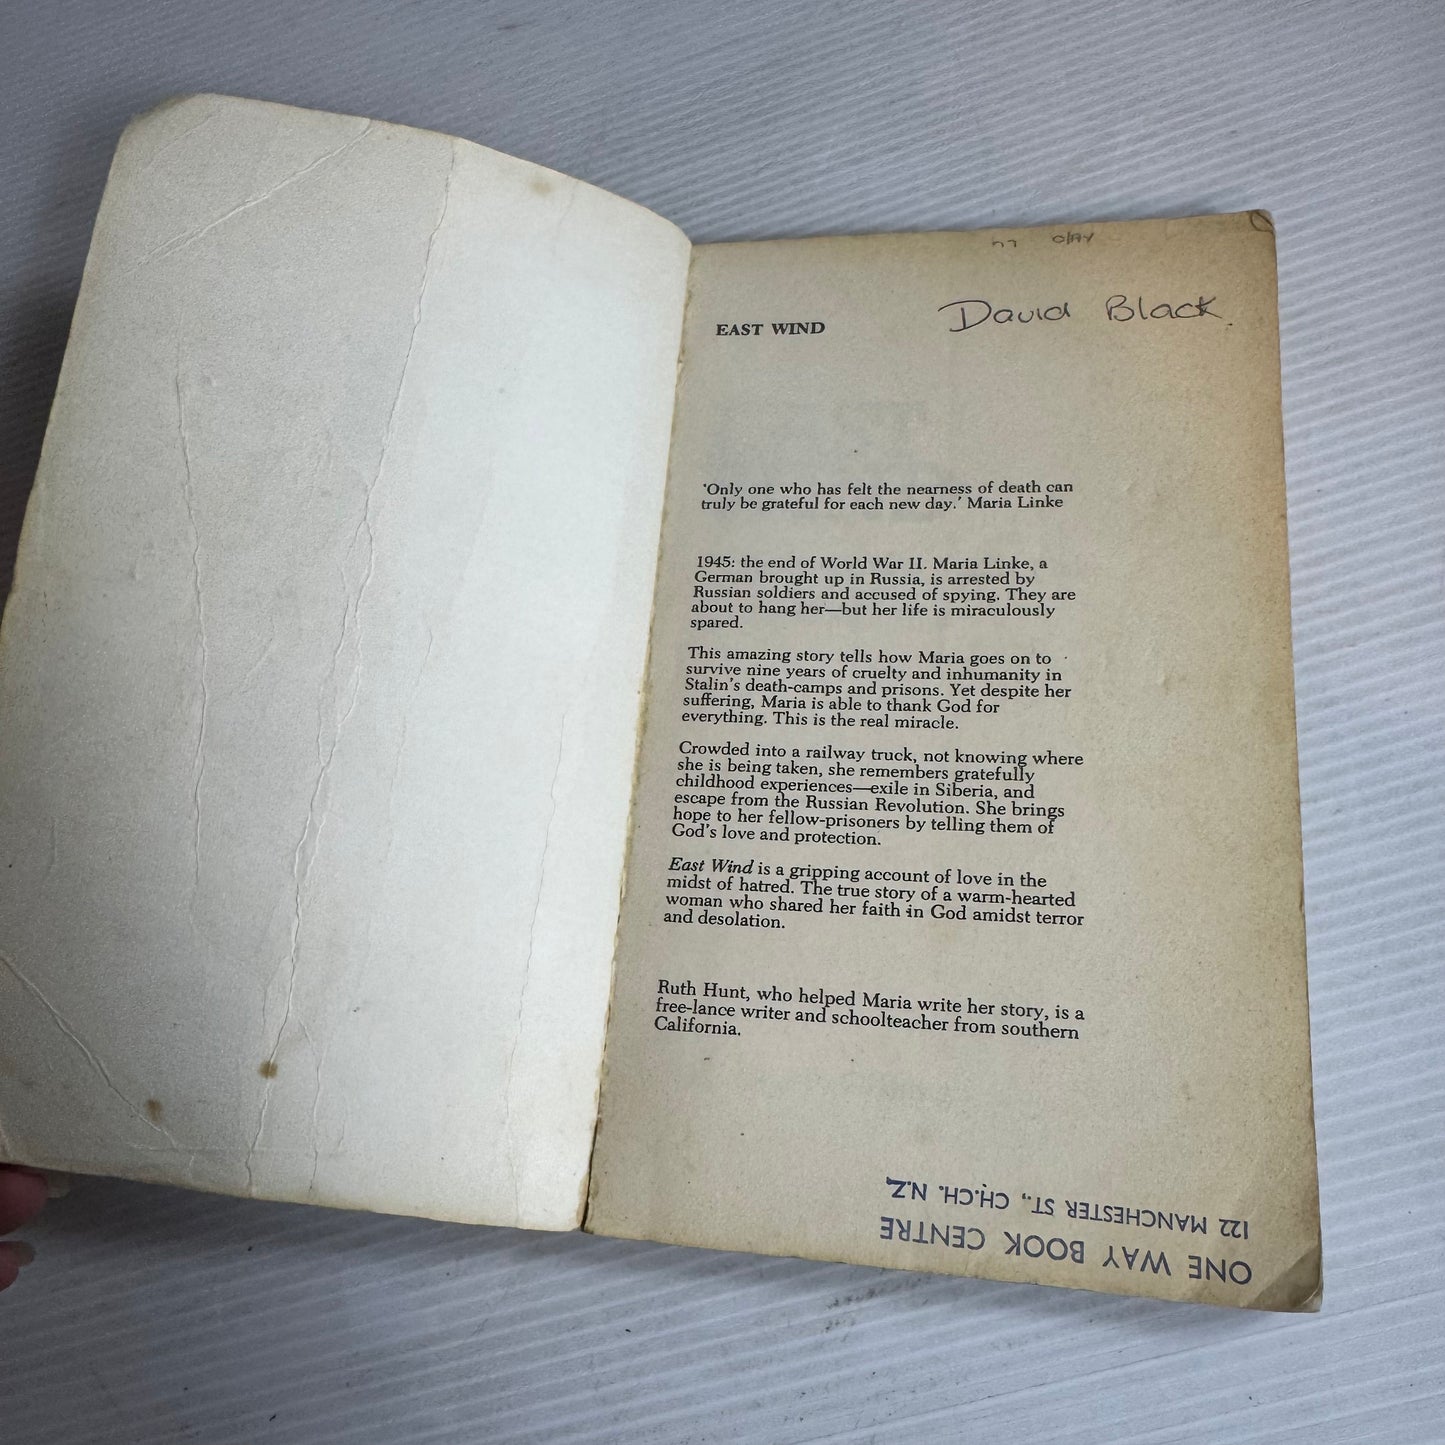 David Black
EAST WIND
'Only one who has felt the nearness of death can
truly be grateful for each new day.' Maria Linke
1945: the end of World War II. Maria Linke, a
German brought up in Russia, is arrested by
Russian soldiers and accused of spying. They are
about to hang her—but her life is miraculously
spared.
This amazing story tells how Maria goes on to
survive nine years of cruelty and inhumanity in
Stalin's death-camps and prisons. Yet despite her
suffering, Maria is able to thank God for
everything. This is the real miracle.
Crowded into a railway truck, not knowing where
she is being taken, she remembers gratefully
childhood experiences—exile in Siberia, and
escape from the Russian Revolution. She brings
hope to her fellow-prisoners by telling them of
God's love and protection.
East Wind is a gripping account of love in the
midst of hatred. The true story of a warm-hearted
woman who shared her faith in God amidst terror
and desolation.
Ruth Hunt, who helped Maria write her story, is a
free-lance writer and schoolteacher from southern
California.
ONE WAY BOOK CENTRE
122 MANCHESTER ST., CH.CH. N.Z.